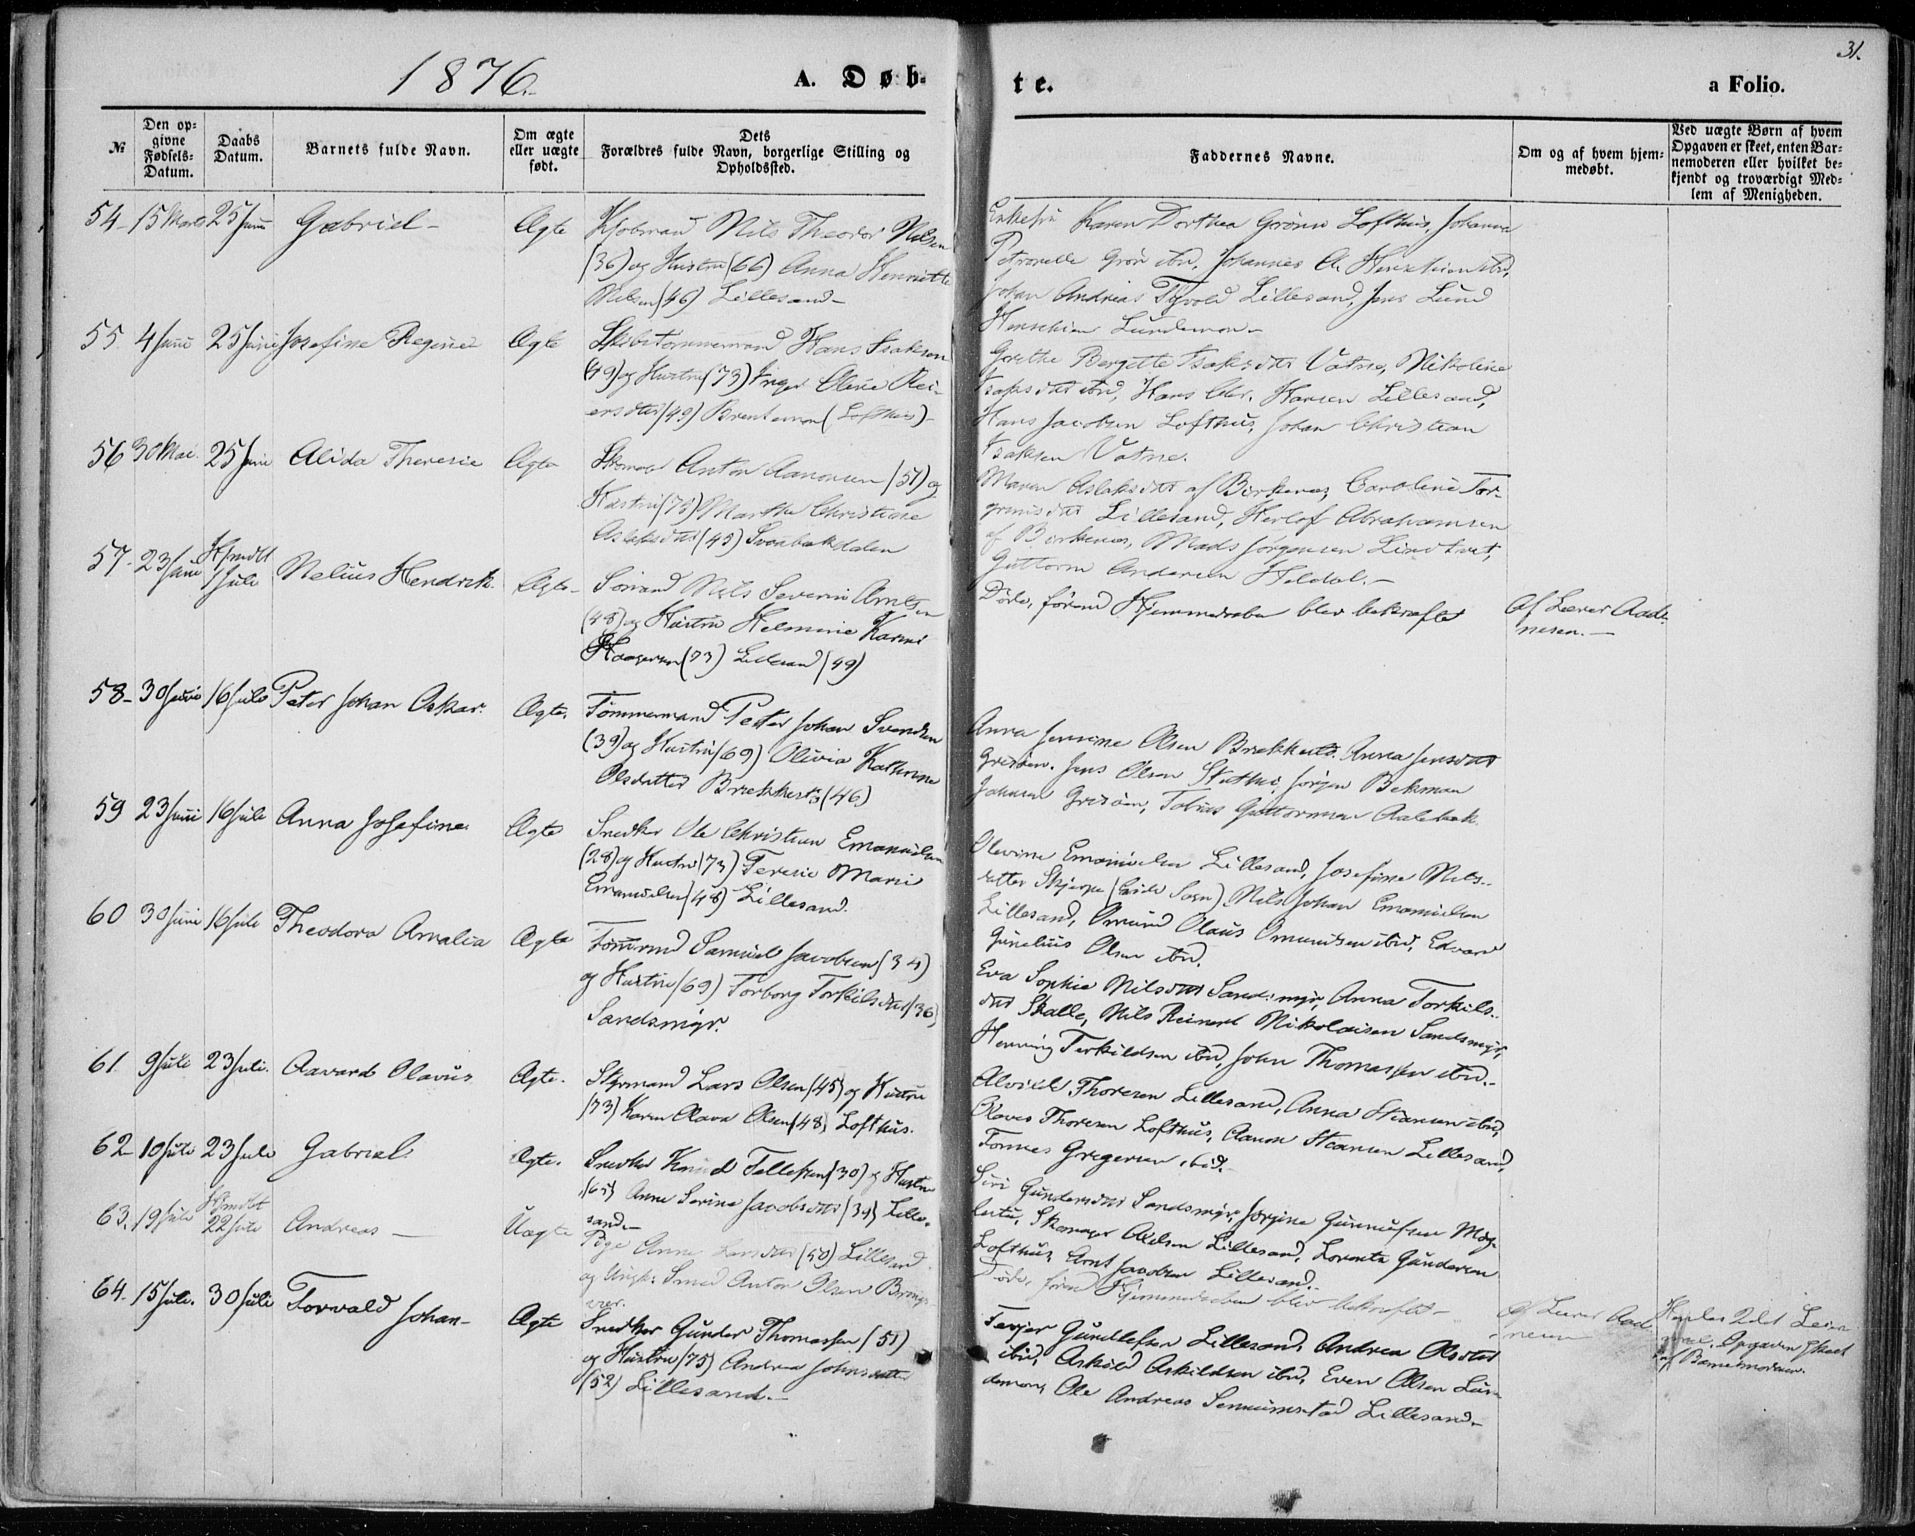 1876.
A. Døb-
te.
a Folio.
31.
№
Den op-
givne
Fødsels-
Datum.
Daabs
Datum.
Barnets fulde Navn.
Om ægte
eller uægte
født.
Dets
Forældres fulde Navn, borgerlige Stilling og
Opholdssted.
Faddernes Navne.
Om og af hvem hjem-
medøbt.
Ved uægte Børn af hvem
Opgaven er skeet, enten Bar-
nemoderen eller hvilket be-
kjendt og troværdigt Med-
lem af Menigheden.
54 - 15 Marts 25 Juni Gabriel - Ægte Kjøbmand Nils Theodor Nilsen
(36) og Hustru (66) Anna Henriette
Nilsen (46) Lillesand -
Karen Dorthea Grønn Lofthus, Johanne
Petronelle Grøn ibid, Johannes A. ibid,
Johan Andreas Lillesand, Jens Lund
Lundemon -
55 4 Juni 25 Juni Josefine Regine Ægte Skibstømmermand Hans Isaksen
(49) og Hustru (73) Inger Olene Rei-
ersdtr (49) Brentemon (Lofthus) -
Grethe Bergitte Isaksdtr Vatne, Nikoline
Isaksdtr ibid, Hans Chr. Hansen Lillesand,
Hans Jacobsen Lofthus, Johan Christian
Isaksen Vatne.
56 30 Mai 25 Juni Alida Theresie Ægte Skomag Anton Aanonsen (51) og
Hustru (75) Marthe Christiane
Aslaksdtr (45) Svaabekdalen
Maren Aslaksdtr af Birkenes, Caroline Tor-
grimsdtr Lillesand, Herlof Abrahamsen
af Birkenes, Mads Jørgensen Lindtveit,
Guttorm Andersen Heldal. -
57 - 23 Juni Hjmdbt 1 Juli Nelius Hendrik Ægte - Sømand Nils Severin Arntsen
(48) og Hustru Helmine Karine
Haagensen (73) Lillesand (49)
Døde, førend Hjemmedaaben blev bekræftet
Af Lærer Aad-
nesen. -
58 - 30 Juni 16 Juli Peter Johan Oskar. Ægte. Tømmermand Petter Johan Svendsen
(39) og Hustru (69) Olivia Kathrine
Olsdatter Brækkestø (46)
Anna Jensine Olsen Brækkestø, Anna Jensdtr
Grisøen, Jens Olsen Jørgen Bekman
Johnsen Grisøen, Tobias Guttormsen Aalebæk.
59 23 Juni 16 Juli Anna Josefine Ægte Snedker Ole Christian Emanuelsen
(28) og Hustru (73) Teresie Marie
Emanuelsen (48) Lillesand.
Olevine Emanuelsen Lillesand, Josefine Nils-
datter Skjerpe (Eide Sogn), Nils Johan Emanuelsen
Lillesand, Omund Olaus Omundsen ibid, Edvard
Gunelius Olsen ibid.
60 30 Juni 16 Juli Theodora Amalia Ægte Tømrmd Samuel Jacobsen (34)
og Hustru (69) Torborg Torkilsdtr (36)
Sandsmyr.
Eva Sophie Nilsdtr Sandsmyr, Anna Torkils-
dtr Skalle, Nils Reinert Nikolaisen Sandsmyr,
Henning Terkildsen ibid, John Thomassen ibid. -
61 9 Juli 23 Juli. Aavard Olavus Ægte. Styrmand Lars Olsen (45) og Hustru
(73) Karen Olava Olsen (48) Lofthus.
Alvild Thoresen Lillesand, Anna Stiansen ibid,
Olaves Thoresen Lofthus, Aanon Stiansen Lillesand,
Tønnes Gregersen ibid. -
62 - 10 Juli 23 Juli Gabriel. Ægte. Snedker Knud Tellefsen (30) og Hustru
(65) Anne Serine Jacobsdtr (34) Lille-
sand. -
Siri Gundersdtr Sandsmyr, Jørgine Gunnufsen Møg-
lestu, Skomager Nilsen Lillesand, Lorentz Gundersen
Lofthus, Arnt Jacobsen Lillesand.
63. 19 Juli Hjmdbt 22 Juli Andreas - Uægte Pige Anne Larsdtr (50) Lillesand
og Ungk. Smed Anton Olsen Brings-
vær.
Døde, førend Hjemmedaaben blev bekræftet -
Af Lærer Aad-
nesen
2det Leier-
maal. Opgaven skeet
af Barnemoderen.
64 - 15 Juli. 30 Juli Torvald Johan - Ægte Snedker Gunder Thomassen (51)
og Hustru (75) Andrea Johnsdatter
(52) Lillesand. -
Terjer Gundlefsen Lillesand, Andrea Olsdtr
ibid, Askild Askildsen ibid, Even Olsen Lun-
demon, Ole Andreas Sennumstad Lillesand -